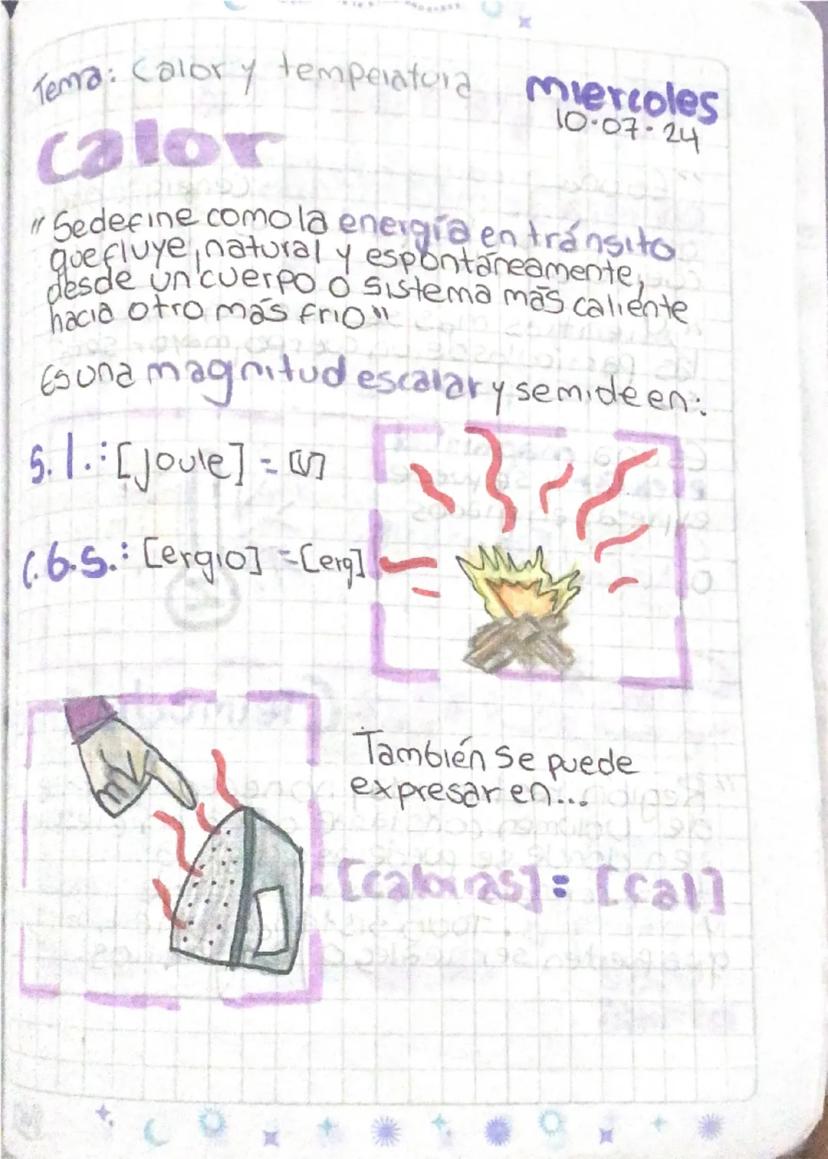 Tema: Calor y temperatura
miercoles
10.07.24
Calor
"Se define como la energía en tránsito
que fluye, natural y espontáneamente,
desde un cuerpo o sistema más caliente
hacia otro más frio"
Es una magnitud escalar y se mide en:
S.I.: [Joule] = [J]
C.G.S.: [ergio] = [erg]
También se puede
expresar en...
[calorias] = [cal]